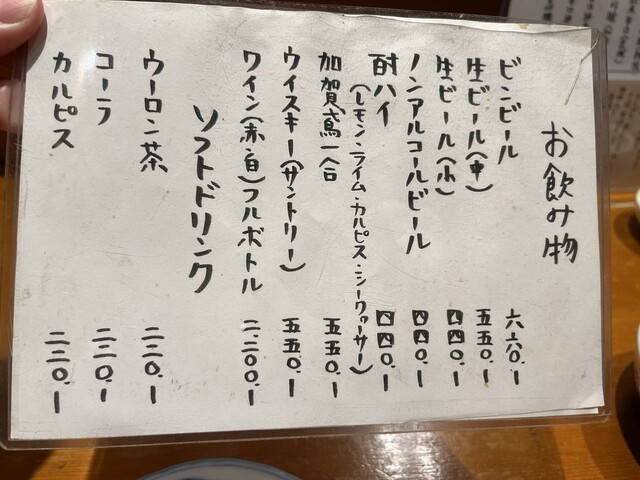 お飲み物
ビンビール 六六〇.ー
生ビール(中) 五五〇.ー
生ビール(小) 四四〇.ー
ノンアルコールビール 四四〇.ー
酎ハイ 四四〇.ー
(レモン・ライム・カルピス・シークヮーサー)
加賀鳶一合 五五〇.ー
ウィスキー(サントリー) 五五〇.ー
ワイン(赤・白)フルボトル 二.二〇〇.ー
ソフトドリンク
ウーロン茶 二二〇.ー
コーラ 二二〇.ー
カルピス 二二〇.ー